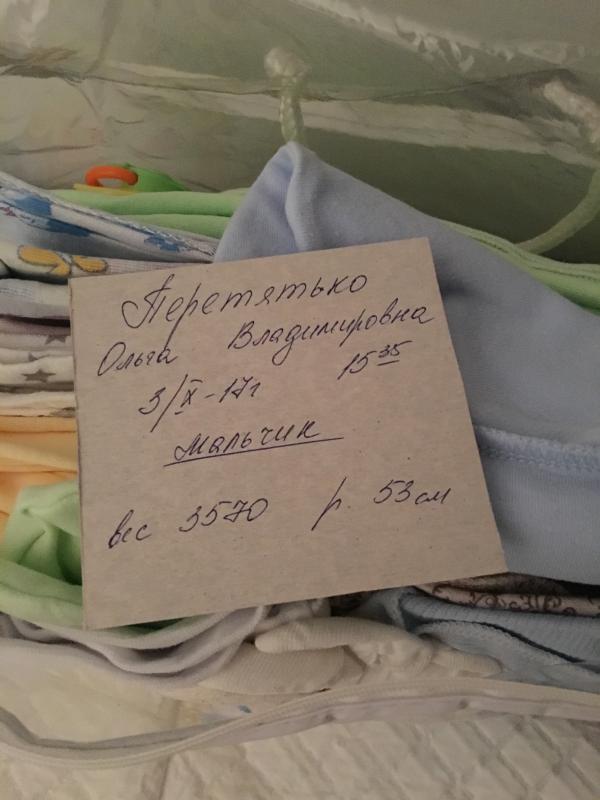 Перетятько
Ольга Владимировна
3/X-17г 15 35
мальчик
вес 3570 р. 53 см